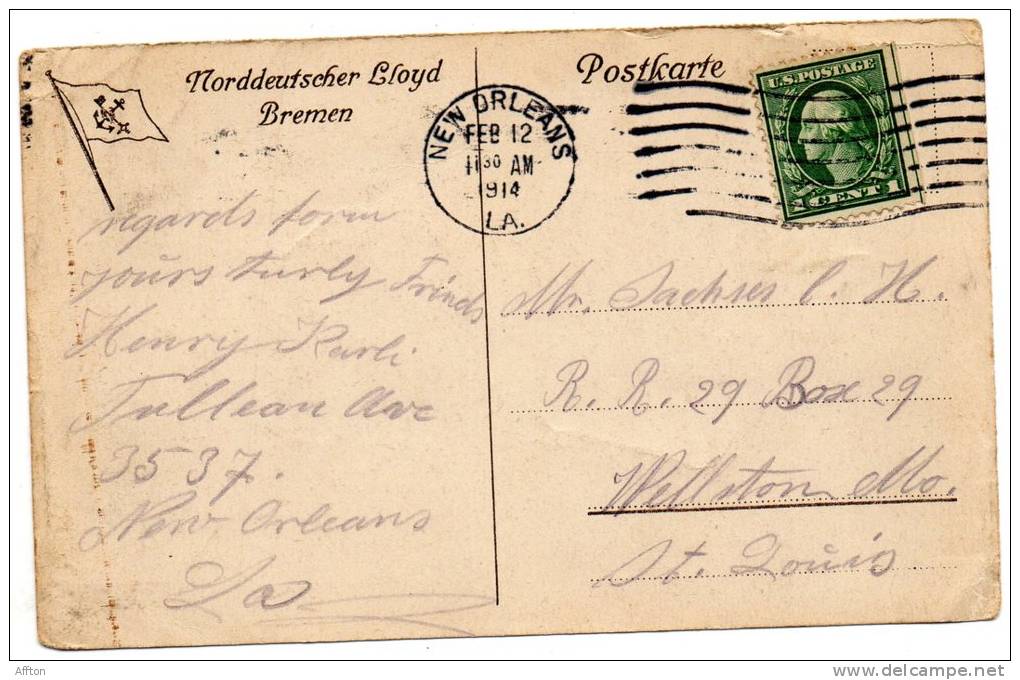 Norddeutscher Lloyd
Bremen
Postkarte
NEW ORLEANS
FEB 12
11 30 AM
1914
LA.
U.S. POSTAGE
1 CENT 1
regards form
yours turly Frinds
Henry Karli
Tullean Ave
3537.
New Orleans
La
Mr. Sachses C. H.
R. R. 29 Box 29
Wellston Mo.
St. Louis
Affton
delcampe.net